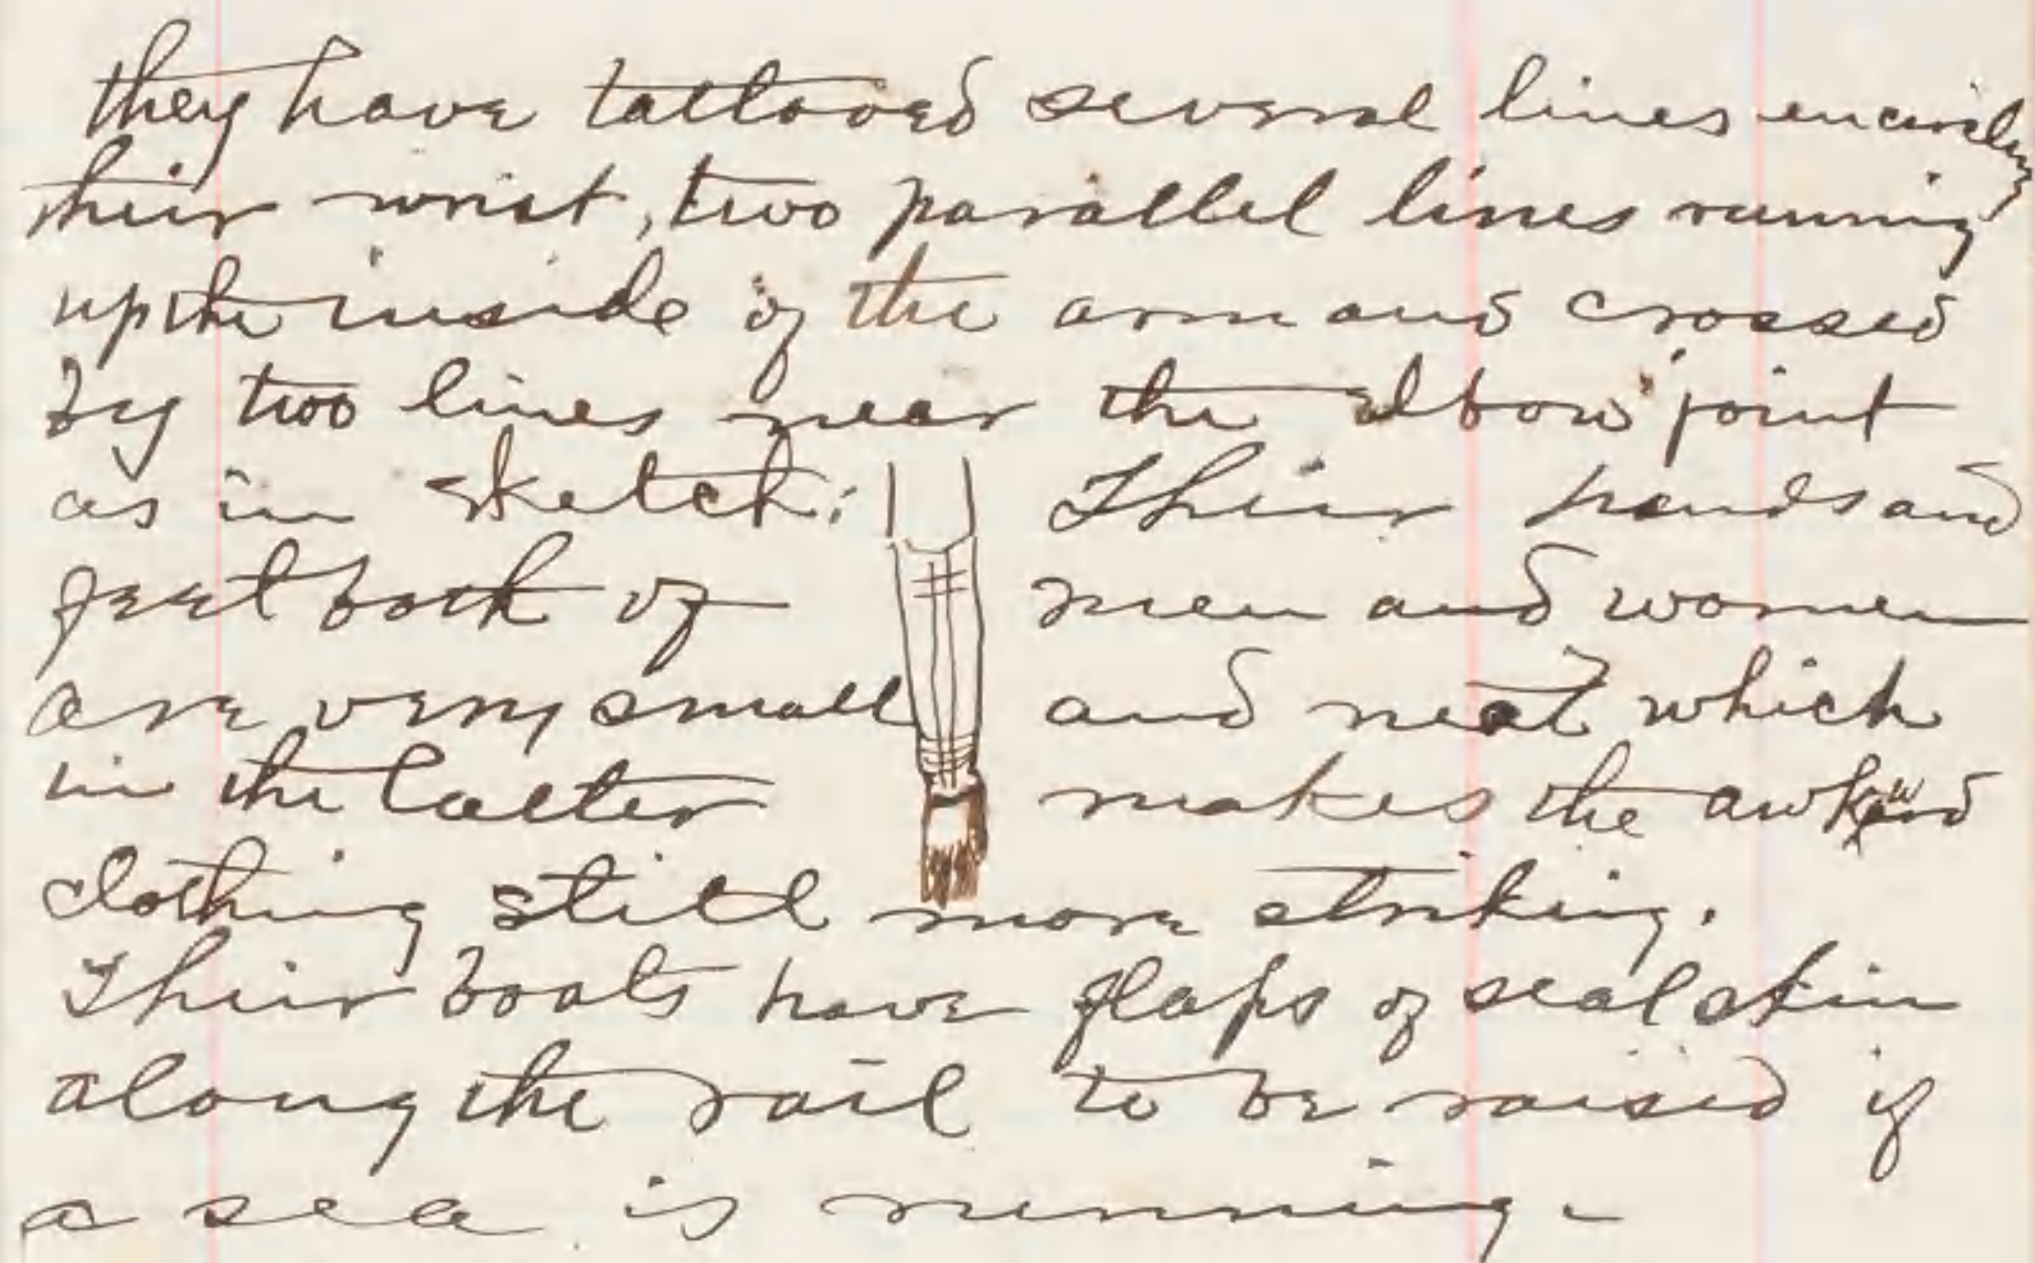 they have tattooed several lines encircling
their wrist, two parallel lines running
up the inside of the arm and crossed
by two lines near the elbow joint
as in sketch: Their hands and
feet both of men and women
are very small and neat which
in the latter makes the awkward
clothing still more striking.
Their boats have flaps of seal skin
along the rail to be raised if
a sea is running.